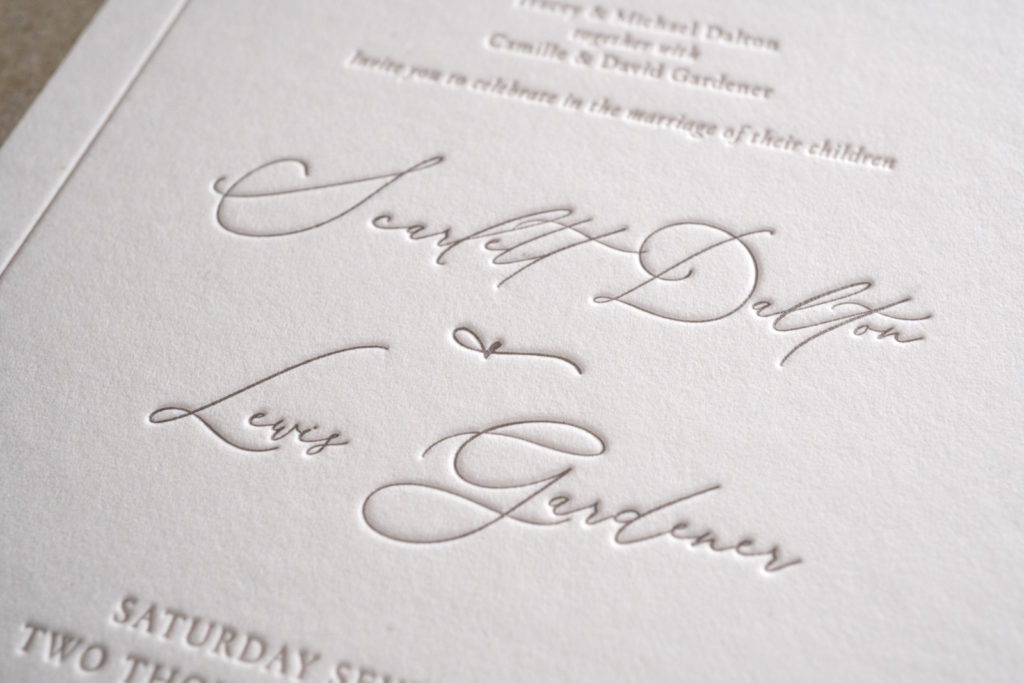 Tracey & Michael Dalton
together with
Camille & David Gardener
Invite you to celebrate in the marriage of their children
Scarlett Dalton
&
Lewis Gardener
SATURDAY
TWO